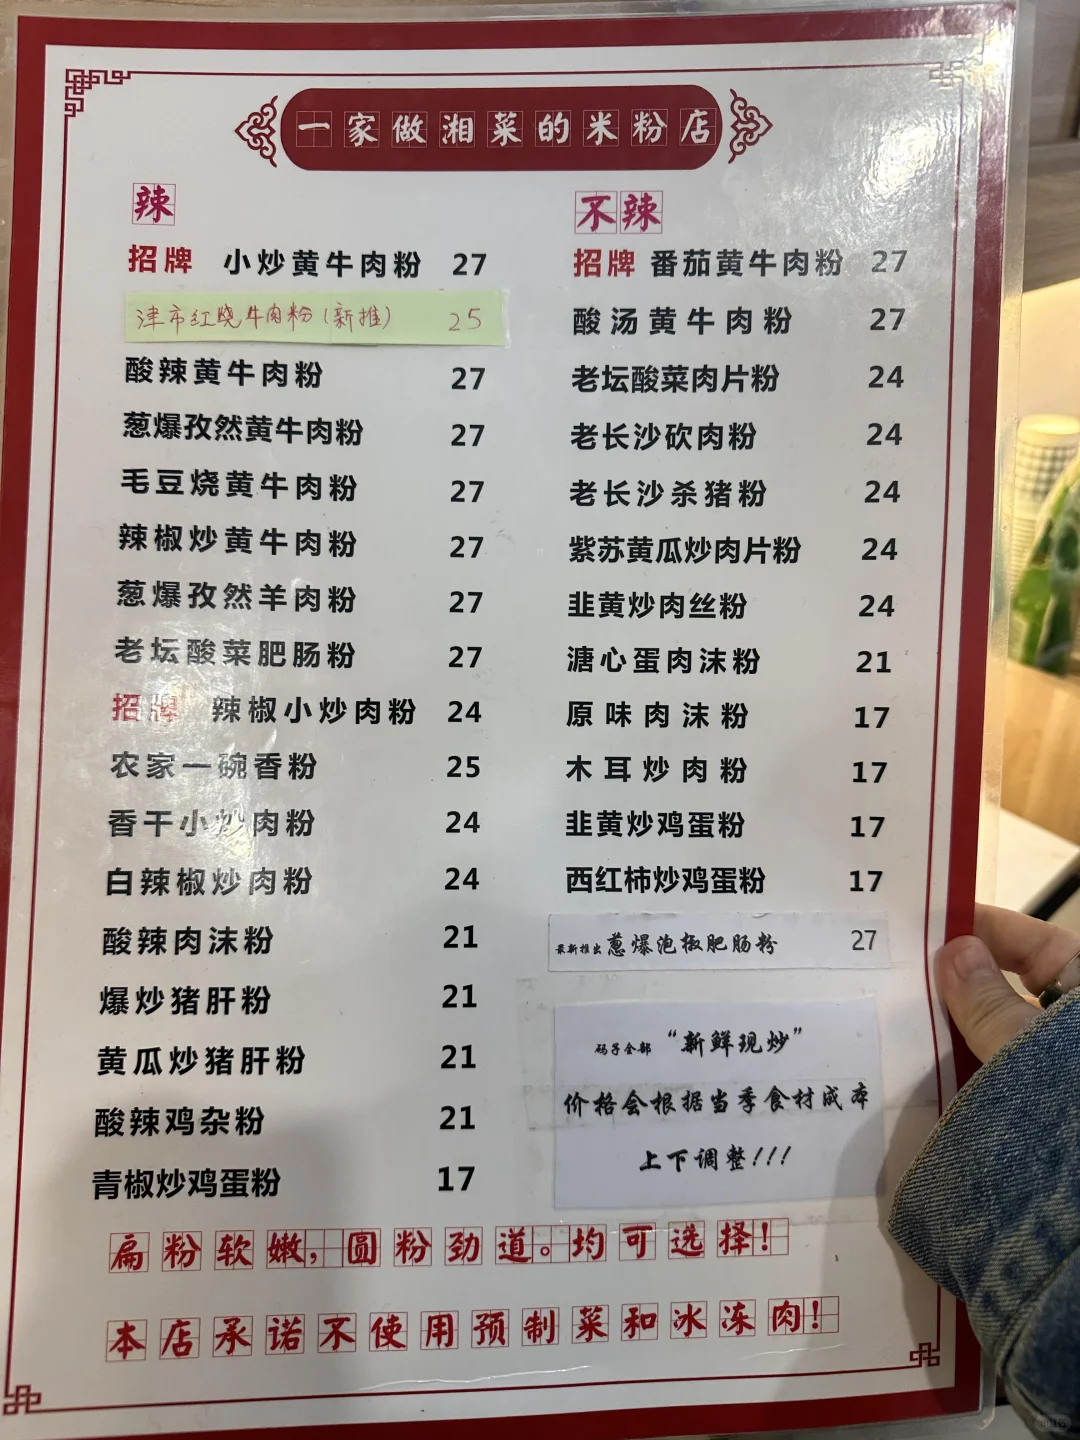 一家做湘菜的米粉店
辣
招牌 小炒黄牛肉粉 27
津市红烧牛肉粉(新推) 25
酸辣黄牛肉粉 27
葱爆孜然黄牛肉粉 27
毛豆烧黄牛肉粉 27
辣椒炒黄牛肉粉 27
葱爆孜然羊肉粉 27
老坛酸菜肥肠粉 27
招牌 辣椒小炒肉粉 24
农家一碗香粉 25
香干小炒肉粉 24
白辣椒炒肉粉 24
酸辣肉沫粉 21
爆炒猪肝粉 21
黄瓜炒猪肝粉 21
酸辣鸡杂粉 21
青椒炒鸡蛋粉 17
不辣
招牌 番茄黄牛肉粉 27
酸汤黄牛肉粉 27
老坛酸菜肉片粉 24
老长沙砍肉粉 24
老长沙杀猪粉 24
紫苏黄瓜炒肉片粉 24
韭黄炒肉丝粉 24
溏心蛋肉沫粉 21
原味肉沫粉 17
木耳炒肉粉 17
韭黄炒鸡蛋粉 17
西红柿炒鸡蛋粉 17
最新推出葱爆泡椒肥肠粉 27
码子全部“新鲜现炒”
价格会根据当季食材成本
上下调整!!!
扁粉软嫩,圆粉劲道。均可选择!
本店承诺不使用预制菜和冰冻肉!